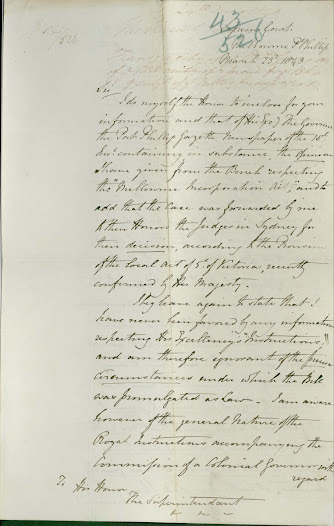 43
526
Supreme Court
Melbourne Pt Phillip
March 25th 1843
Sir
I do myself the Honor to inclose for your
information and that of His Exy The Governor
the Port Phillip Gazette Newspaper of the
containing in substance the Opinion
I have given from the Bench respecting
the "Melbourne Incorporation Act," and to
add that the Case was forwarded by me
to their Honors the Judges in Sydney for
their decision, according to the Provision
of the Local Act of 5. of Victoria, recently
confirmed by Her Majesty.
I beg leave again to state that I
have never been favored by any information
respecting His Excellency's "Instructions,"
and am therefore ignorant of the precise
Circumstances under which the Bill
was promulgated as Law. I am aware
however of the general Nature of the
Royal Instructions accompanying the
Commission of a Colonial Governor with
regard
To His Honor
The Superintendent